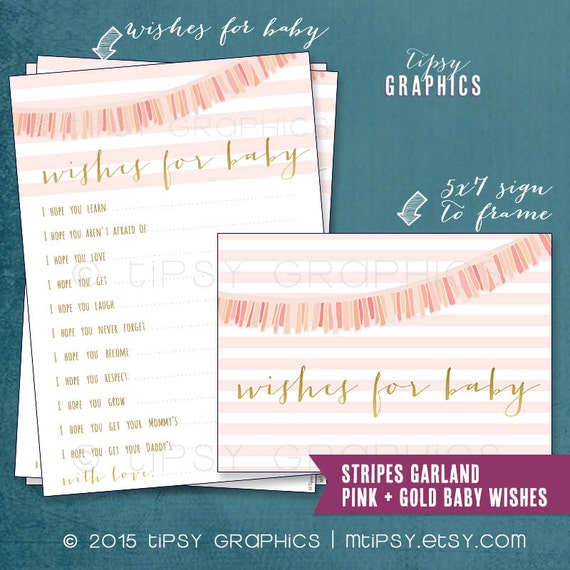 wishes for baby
tipsy
GRAPHICS
© TIPSY GRAPHICS
wishes for baby
I HOPE YOU LEARN
I HOPE YOU AREN'T AFRAID OF
I HOPE YOU LOVE
I HOPE YOU GET
I HOPE YOU LAUGH
I HOPE YOU NEVER FORGET
I HOPE YOU BECOME
I HOPE YOU RESPECT
I HOPE YOU GROW
I HOPE YOU GET YOUR MOMMY'S
I HOPE YOU GET YOUR DADDY'S
with love,
5x7 sign
to frame
© TIPSY GRAPHICS
wishes for baby
© TIPSY GRAPHICS
STRIPES GARLAND
PINK + GOLD BABY WISHES
© 2015 TIPSY GRAPHICS | MTIPSY.ETSY.COM